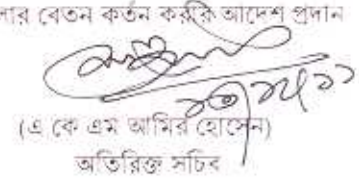 লার বেতন কর্তন করার আদেশ প্রদান
(এ কে এম আমির হোসেন)
অতিরিক্ত সচিব